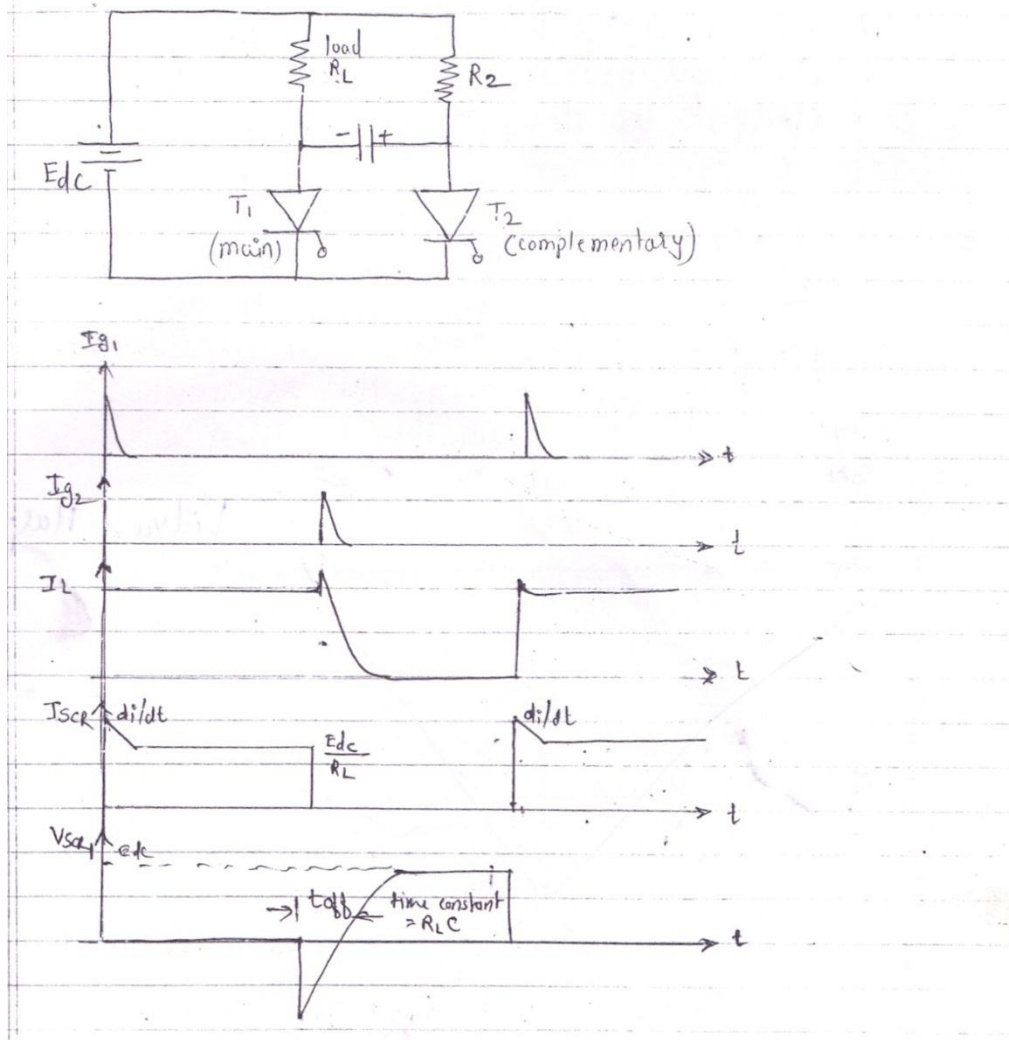 load
RL
R2
- +
Edc
T1
(main)
T2
(complementary)
Ig1
t
Ig2
t
IL
t
ISCR di/dt
di/dt
Edc
RL
t
VSCR1 edc
toff
time constant
= RLC
t